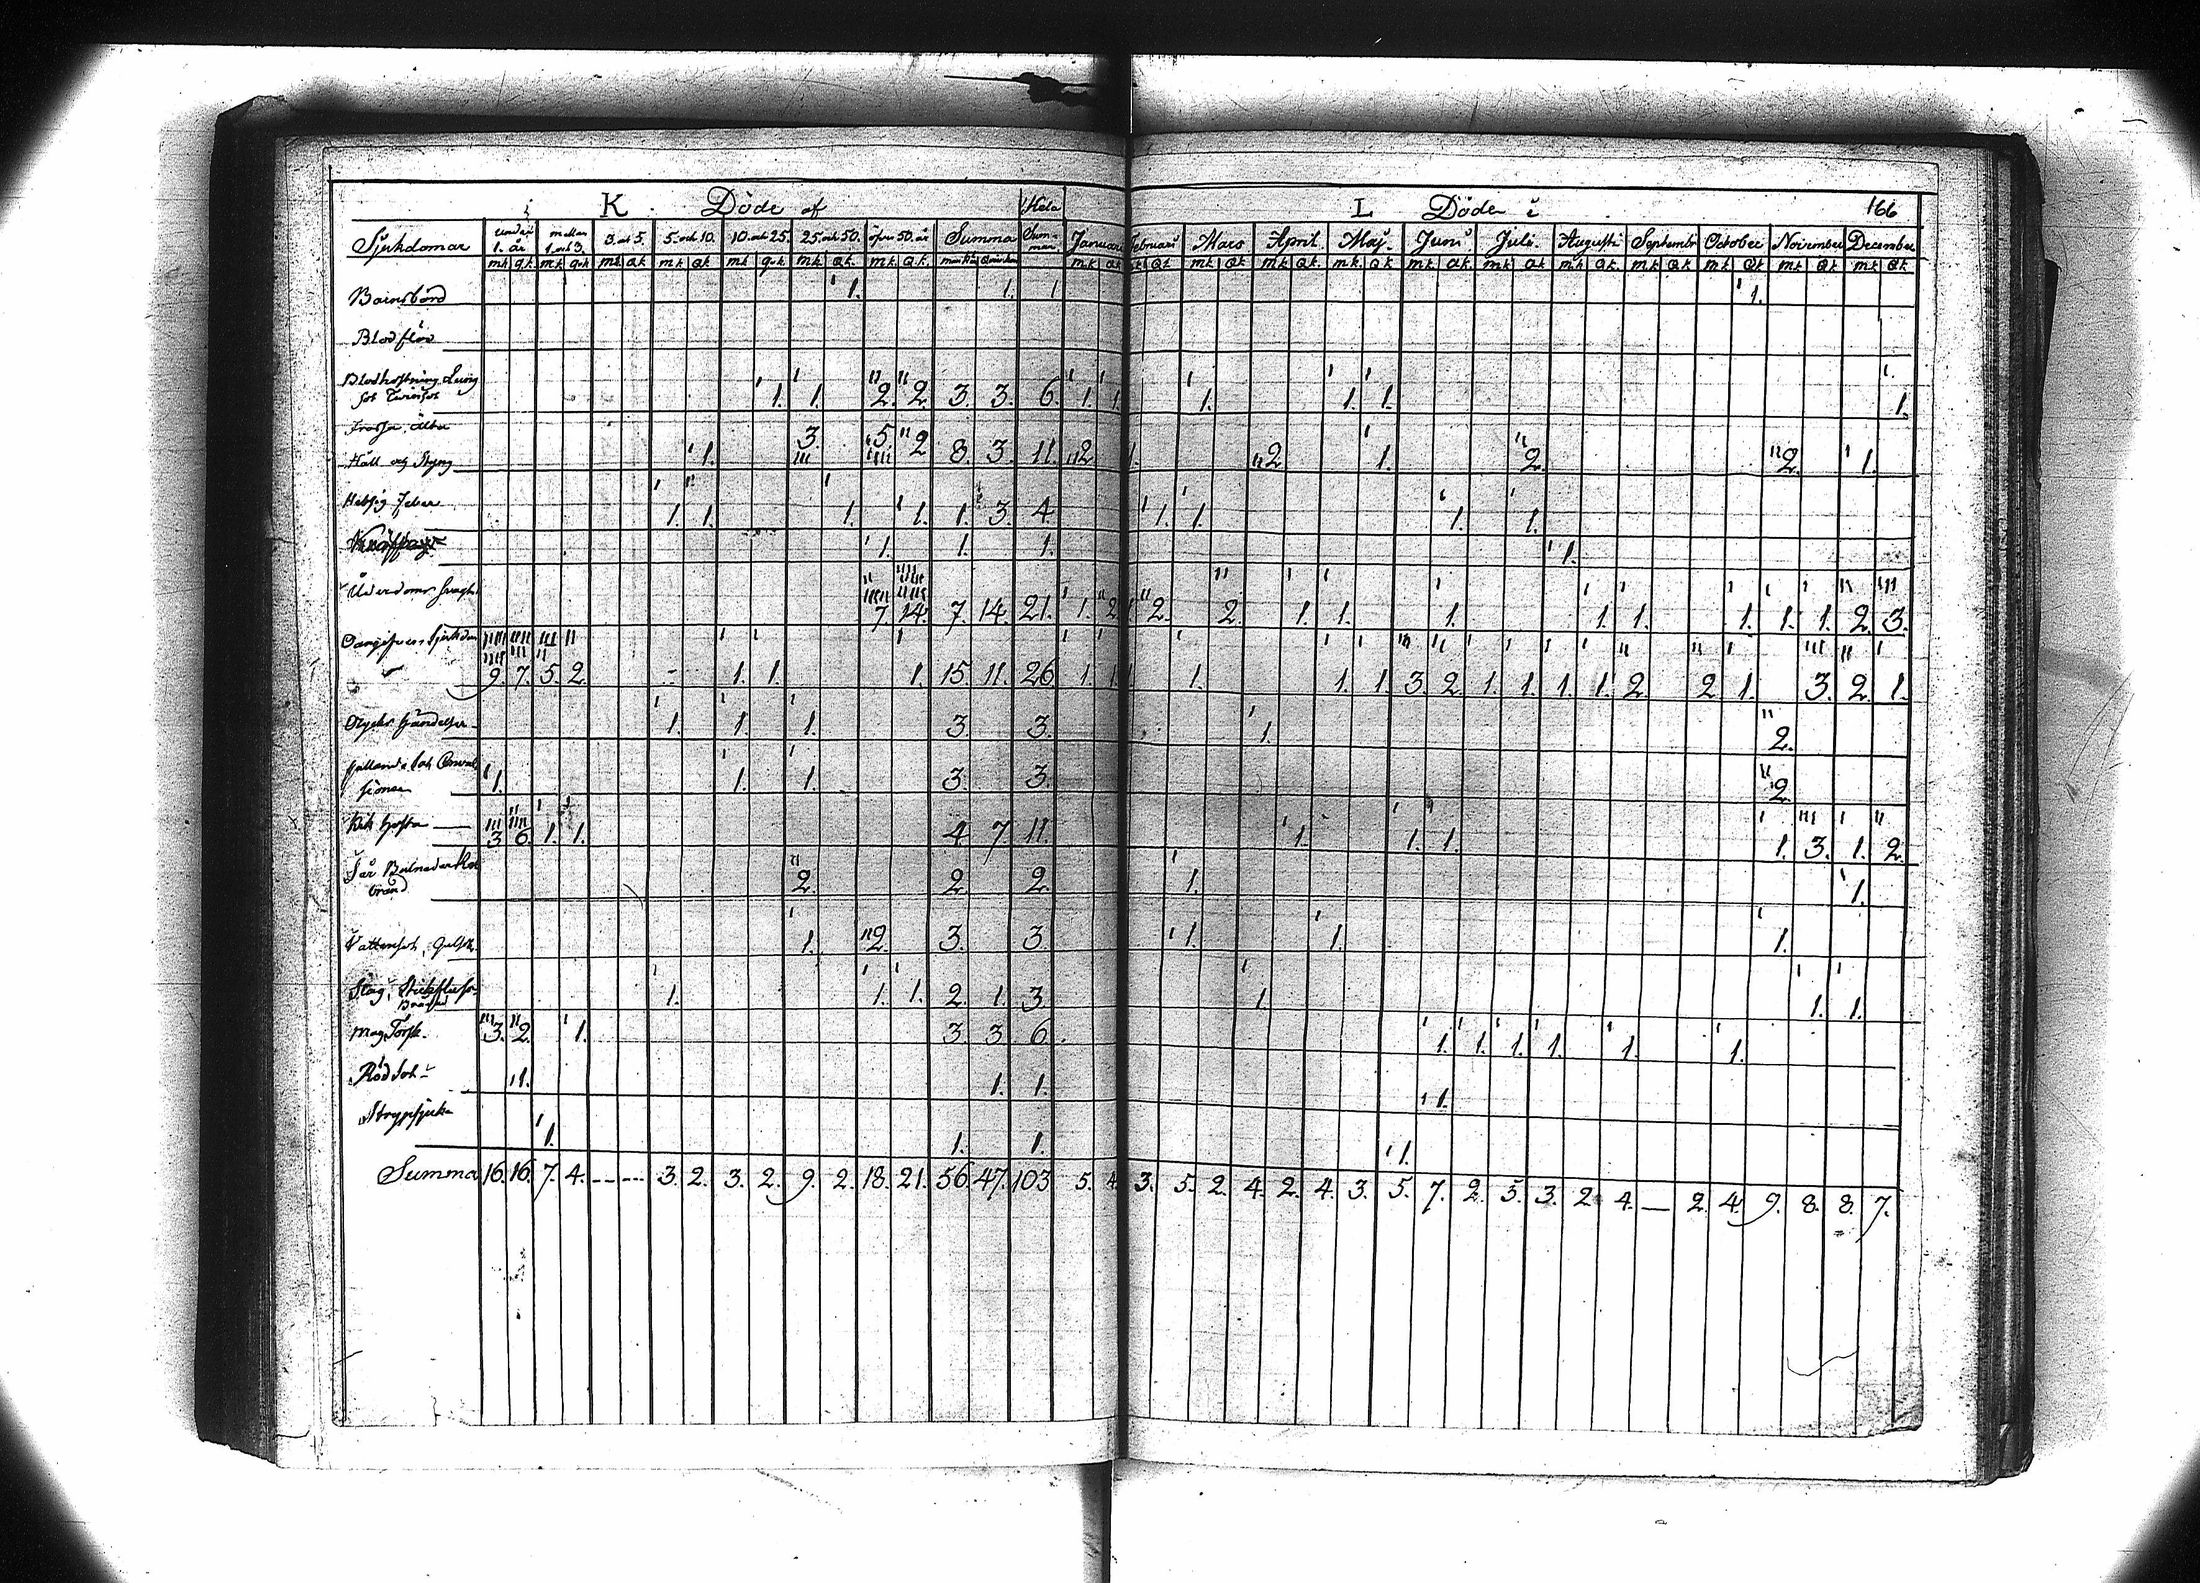 K Döde af Hela L Döde i 166
Sjukdomar under 1. år mellan 1. och 3. 3. och 5. 5. och 10. 10. och 25. 25. och 50. öfver 50. år Summa Sum- man Januari Februari Mars April Maj Juni Juli Augusti Septembr October November December
mk qk mk qvk mk qk mk qk mk qvk mk qk mk qk mankön Qvinkön mk qk mk qk mk qk mk qk mk qk mk qk mk qk mk qk mk qk mk qk mk qk mk qk
Barnsbörd 1. 1. 1 1.
Blodflöd
Blodhostning Lung
sot Tvinsot 1. 1. 2. 2 3. 3. 6. 1. 1. 1. 1. 1. 1.
Frossa, Älta
Håll och Styng 1. 3. 5. 2 8. 3. 11. 2. 1. 2 1. 2. 2. 1.
Hetsig Feber 1. 1. 1. 1. 1. 3. 4. 1. 1. 1. 1.
1. 1. 1. 1.
Ålderdoms svaghet 7. 14. 7. 14. 21. 1. 2. 1. 2. 2. 1. 1. 1. 1. 1. 1. 1. 1. 2. 3.
Oangifven Sjukdom
9. 7. 5. 2. 1. 1. 1. 15. 11. 26. 1. 1. 1 1. 1. 1. 3. 2. 1. 1. 1. 1. 2. 2. 1. 3. 2. 1.
Olyckshändelser 1. 1. 1. 3. 3. 1. 2.
Fallande Sot Convul
sioner 1. 1. 1. 3. 3. 2.
Kik hosta 3. 6. 1. 1. 4. 7. 11. 1. 1. 1. 1. 3. 1. 2.
Sår Bulnader Kall
brand 2. 2. 2. 1. 1.
Vattensot, Gulsot 1. 2. 3. 3. 1. 1. 1.
Slag, Stickfluss
1. 1. 1. 2. 1. 3. 1. 1. 1.
mag Torsk. 3. 2. 1. 3 3. 6. 1. 1. 1. 1. 1. 1.
Rödsot 1. 1. 1. 1.
Strypsjuka 1. 1. 1. 1.
Summa 16. 16. 7. 4. ---- 3. 2. 3. 2. 9. 2. 18. 21. 56. 47. 103 5. 4. 3. 5. 2. 4. 2. 4. 3. 5. 7. 2. 5. 3. 2. 4. — 2. 4. 9. 8. 8. 7.